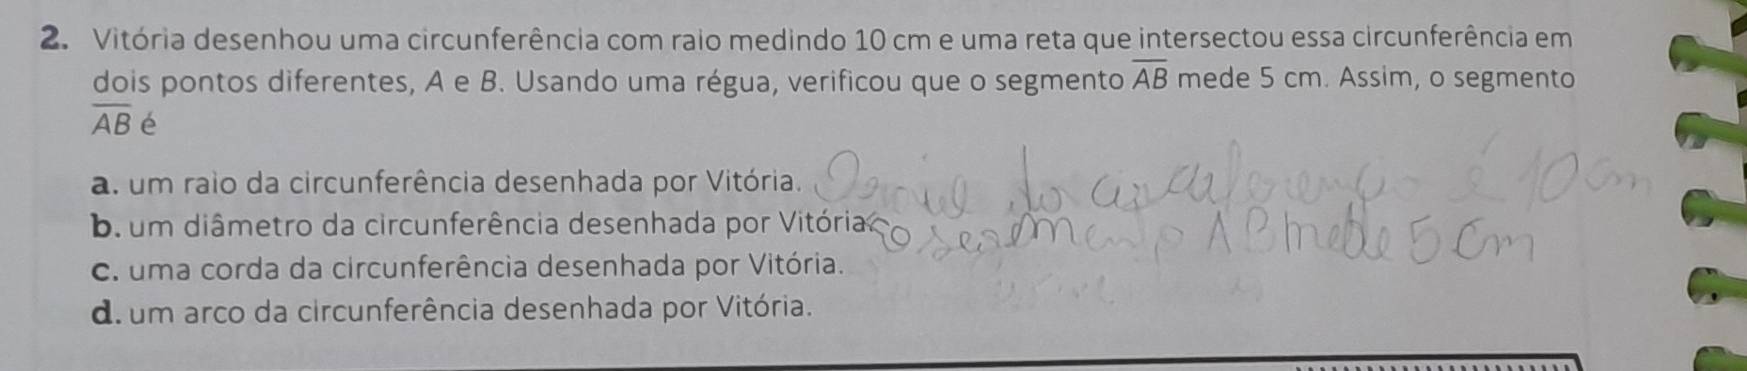 2. Vitória desenhou uma circunferência com raio medindo 10 cm e uma reta que intersectou essa circunferência em
dois pontos diferentes, A e B. Usando uma régua, verificou que o segmento AB mede 5 cm. Assim, o segmento
AB é
a. um raio da circunferência desenhada por Vitória. do é 10 cm
b. um diâmetro da circunferência desenhada por Vitória. o segmento AB mede 5 cm
c. uma corda da circunferência desenhada por Vitória.
d. um arco da circunferência desenhada por Vitória.